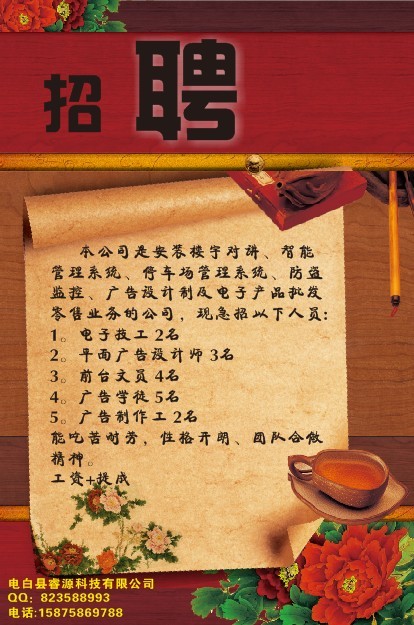 招聘
本公司是安装楼宇对讲、智能
管理系统、停车场管理系统、防盗
监控、广告设计制及电子产品批发
零售业务的公司，现急招以下人员：
1。电子技工 2名
2。平面广告设计师 3名
3。前台文员 4名
4。广告学徒 5名
5。广告制作工 2名
能吃苦耐劳，性格开明、团队合做
精神。
工资+提成
电白县睿源科技有限公司
QQ：823588993
电话:15875869788